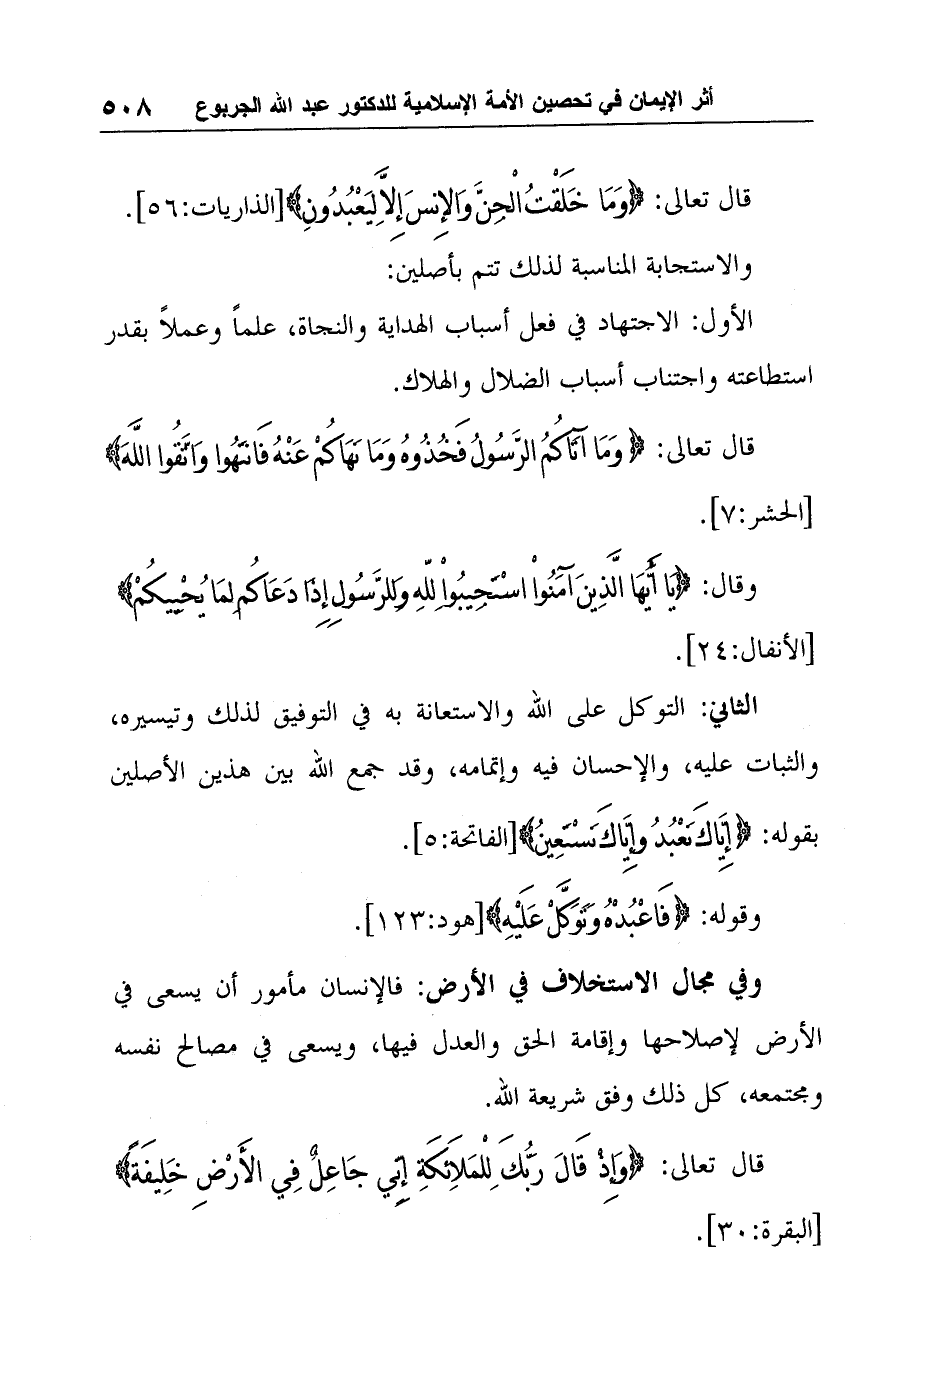 أثر الإيمان في تحصين الأمة الإسلامية للدكتور عبد الله الجربوع ٥٠٨
قال تعالى: ﴿وَمَا خَلَقْتُ الْجِنَّ وَالإِنسَ إِلاَّ لِيَعْبُدُونِ﴾[الذاريات:٥٦].
والاستجابة المناسبة لذلك تتم بأصلين:
الأول: الاجتهاد في فعل أسباب الهداية والنجاة، علماً وعملاً بقدر
استطاعته واجتناب أسباب الضلال والهلاك.
قال تعالى: ﴿وَمَا آتَاكُمُ الرَّسُولُ فَخُذُوهُ وَمَا نَهَاكُمْ عَنْهُ فَانتَهُوا وَاتَّقُوا اللَّهَ﴾
[الحشر:٧].
وقال: ﴿يَا أَيُّهَا الَّذِينَ آمَنُواْ اسْتَجِيبُواْ لِلّهِ وَلِلرَّسُولِ إِذَا دَعَاكُم لِمَا يُحْيِيكُمْ﴾
[الأنفال:٢٤].
الثاني: التوكل على الله والاستعانة به في التوفيق لذلك وتيسيره،
والثبات عليه، والإحسان فيه وإتمامه، وقد جمع الله بين هذين الأصلين
بقوله: ﴿إِيَّاكَ نَعْبُدُ وإِيَّاكَ نَسْتَعِينُ﴾[الفاتحة:٥].
وقوله: ﴿فَاعْبُدْهُ وَتَوَكَّلْ عَلَيْهِ﴾[هود:١٢٣].
وفي مجال الاستخلاف في الأرض: فالإنسان مأمور أن يسعى في
الأرض لإصلاحها وإقامة الحق والعدل فيها، ويسعى في مصالح نفسه
ومجتمعه، كل ذلك وفق شريعة الله.
قال تعالى: ﴿وَإِذْ قَالَ رَبُّكَ لِلْمَلاَئِكَةِ إِنِّي جَاعِلٌ فِي الأَرْضِ خَلِيفَةً﴾
[البقرة:٣٠].